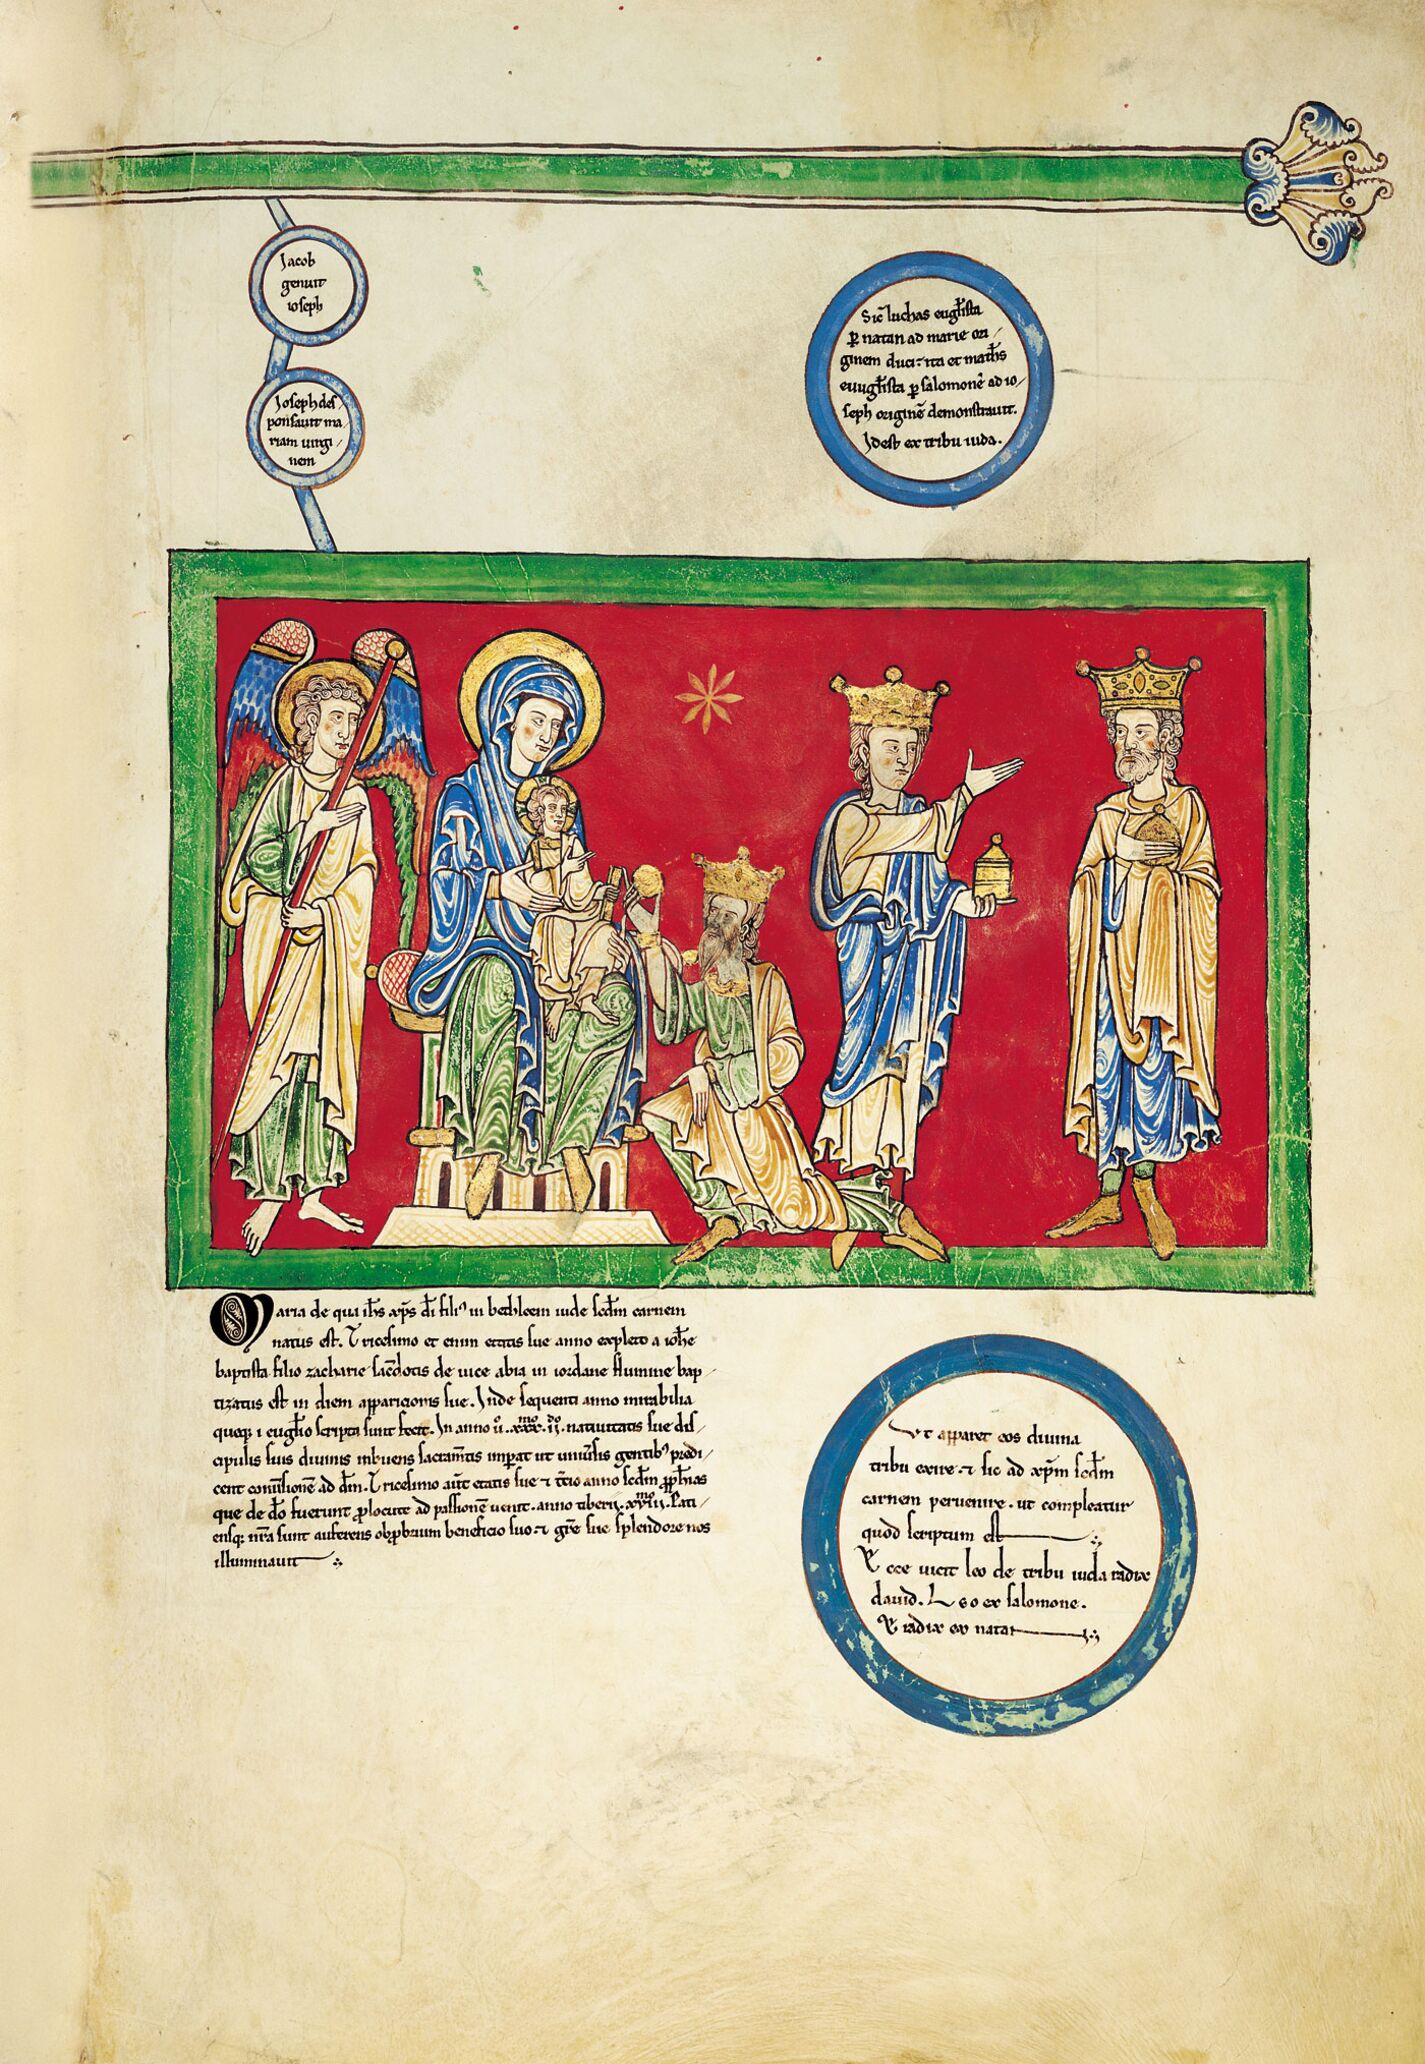 Jacob
genuit
ioseph
Joseph des/
ponsauit ma/
riam uirgi/
nem
Sic̄ luchas eugl̄ista
ꝑ natan ad marie ori/
ginem duci: ita et math̄s
euugl̄ista ꝑ salomonē ad io/
seph originē demonstrauit.
Idest ex tribu iuda.
Maria de qua ih̄s xp̄s dī filiꝰ in bethleem iude scd̄m carnem
natus est. Tricesimo et enim etatis sue anno expleto a ioh̄e
baptista filio zacharie sac̄dotis de uice abia in iordane flumine bap/
tizatus est in diem apparicionis sue. Inde sequenti anno mirabilia
queqꝫ ī eugl̄io scripta sunt fecit. In anno ū. xxx.mo ii.do natiuitatis sue dis/
cipulis suis diuinis inbuens sacram̄tis imꝑat ut uniūsis gentibꝰ predi/
cent conūsionē ad dn̄m. Tricesimo aūt etatis sue ⁊ t̄cio anno scd̄m ꝓph̄ias
que de dō fuerunt ꝓlocute ad passionē uenit. anno tiberii. xviii.mo Pati/
ensqꝫ nr̄a sunt auferens obꝓbrium beneficio suo: ⁊ gr̄e sue splendore nos
illuminauit
Ut apparet eos diuina
tribu exire. ⁊ sic ad xp̄m scd̄m
carnem peruenire. ut compleatur
quod scriptum est
Ecce uicit leo de tribu iuda radix
dauid. Leo ex salomone.
Et radix ex natan